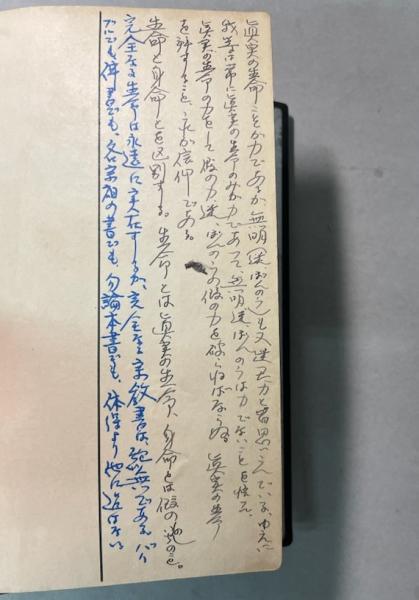 眞実の生命ことが力であるが、無明(迷ぼんのう)も又迷又力と皆思いこんでいる、ゆえに
我等は常に眞実の生命のみが力であって、無明迷ぼんのうは力でないことを
眞実の生命の力をして仮の力、迷、ぼんのうの仮の力を破らねばならぬ。眞実の生命
を 信仰である。
生命と身命とを区別する。生命とは眞実の生命、身命とは仮の のこと。
完全なる生命は永遠に実在するが、完全なる宗教書は絶無である。バイ
でも佛書でも、各宗祖の書でも、勿論本書でも、体得より他に道はない